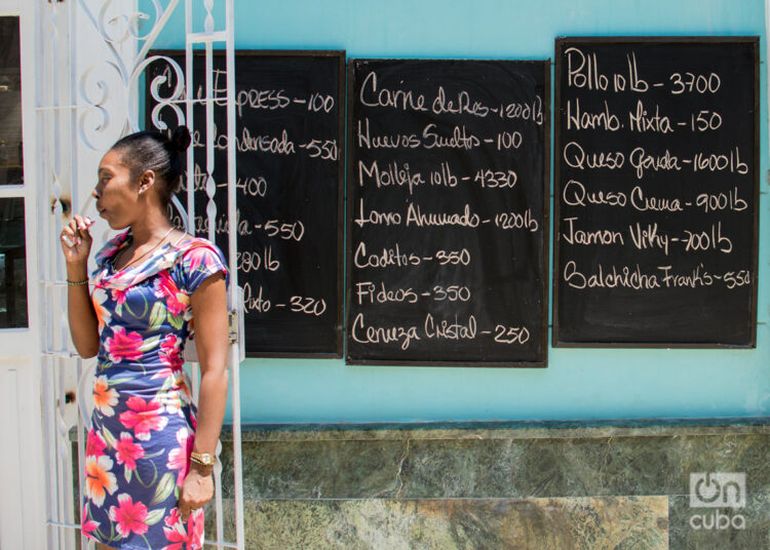 Express - 100
Condensada - 550
- 400
- 550
280 lb
- 320
Carne de Res - 1200 lb
Huevos Sueltos - 100
Molleja 10 lb - 4230
Lomo Ahumado - 1200 lb
Coditos - 350
Fideos - 350
Cerveza Cristal - 250
Pollo 10 lb - 3700
Hamb. Mixta - 150
Queso Gouda - 1600 lb
Queso Crema - 900 lb
Jamon Viky - 700 lb
Salchicha Frankis - 550
On
cuba